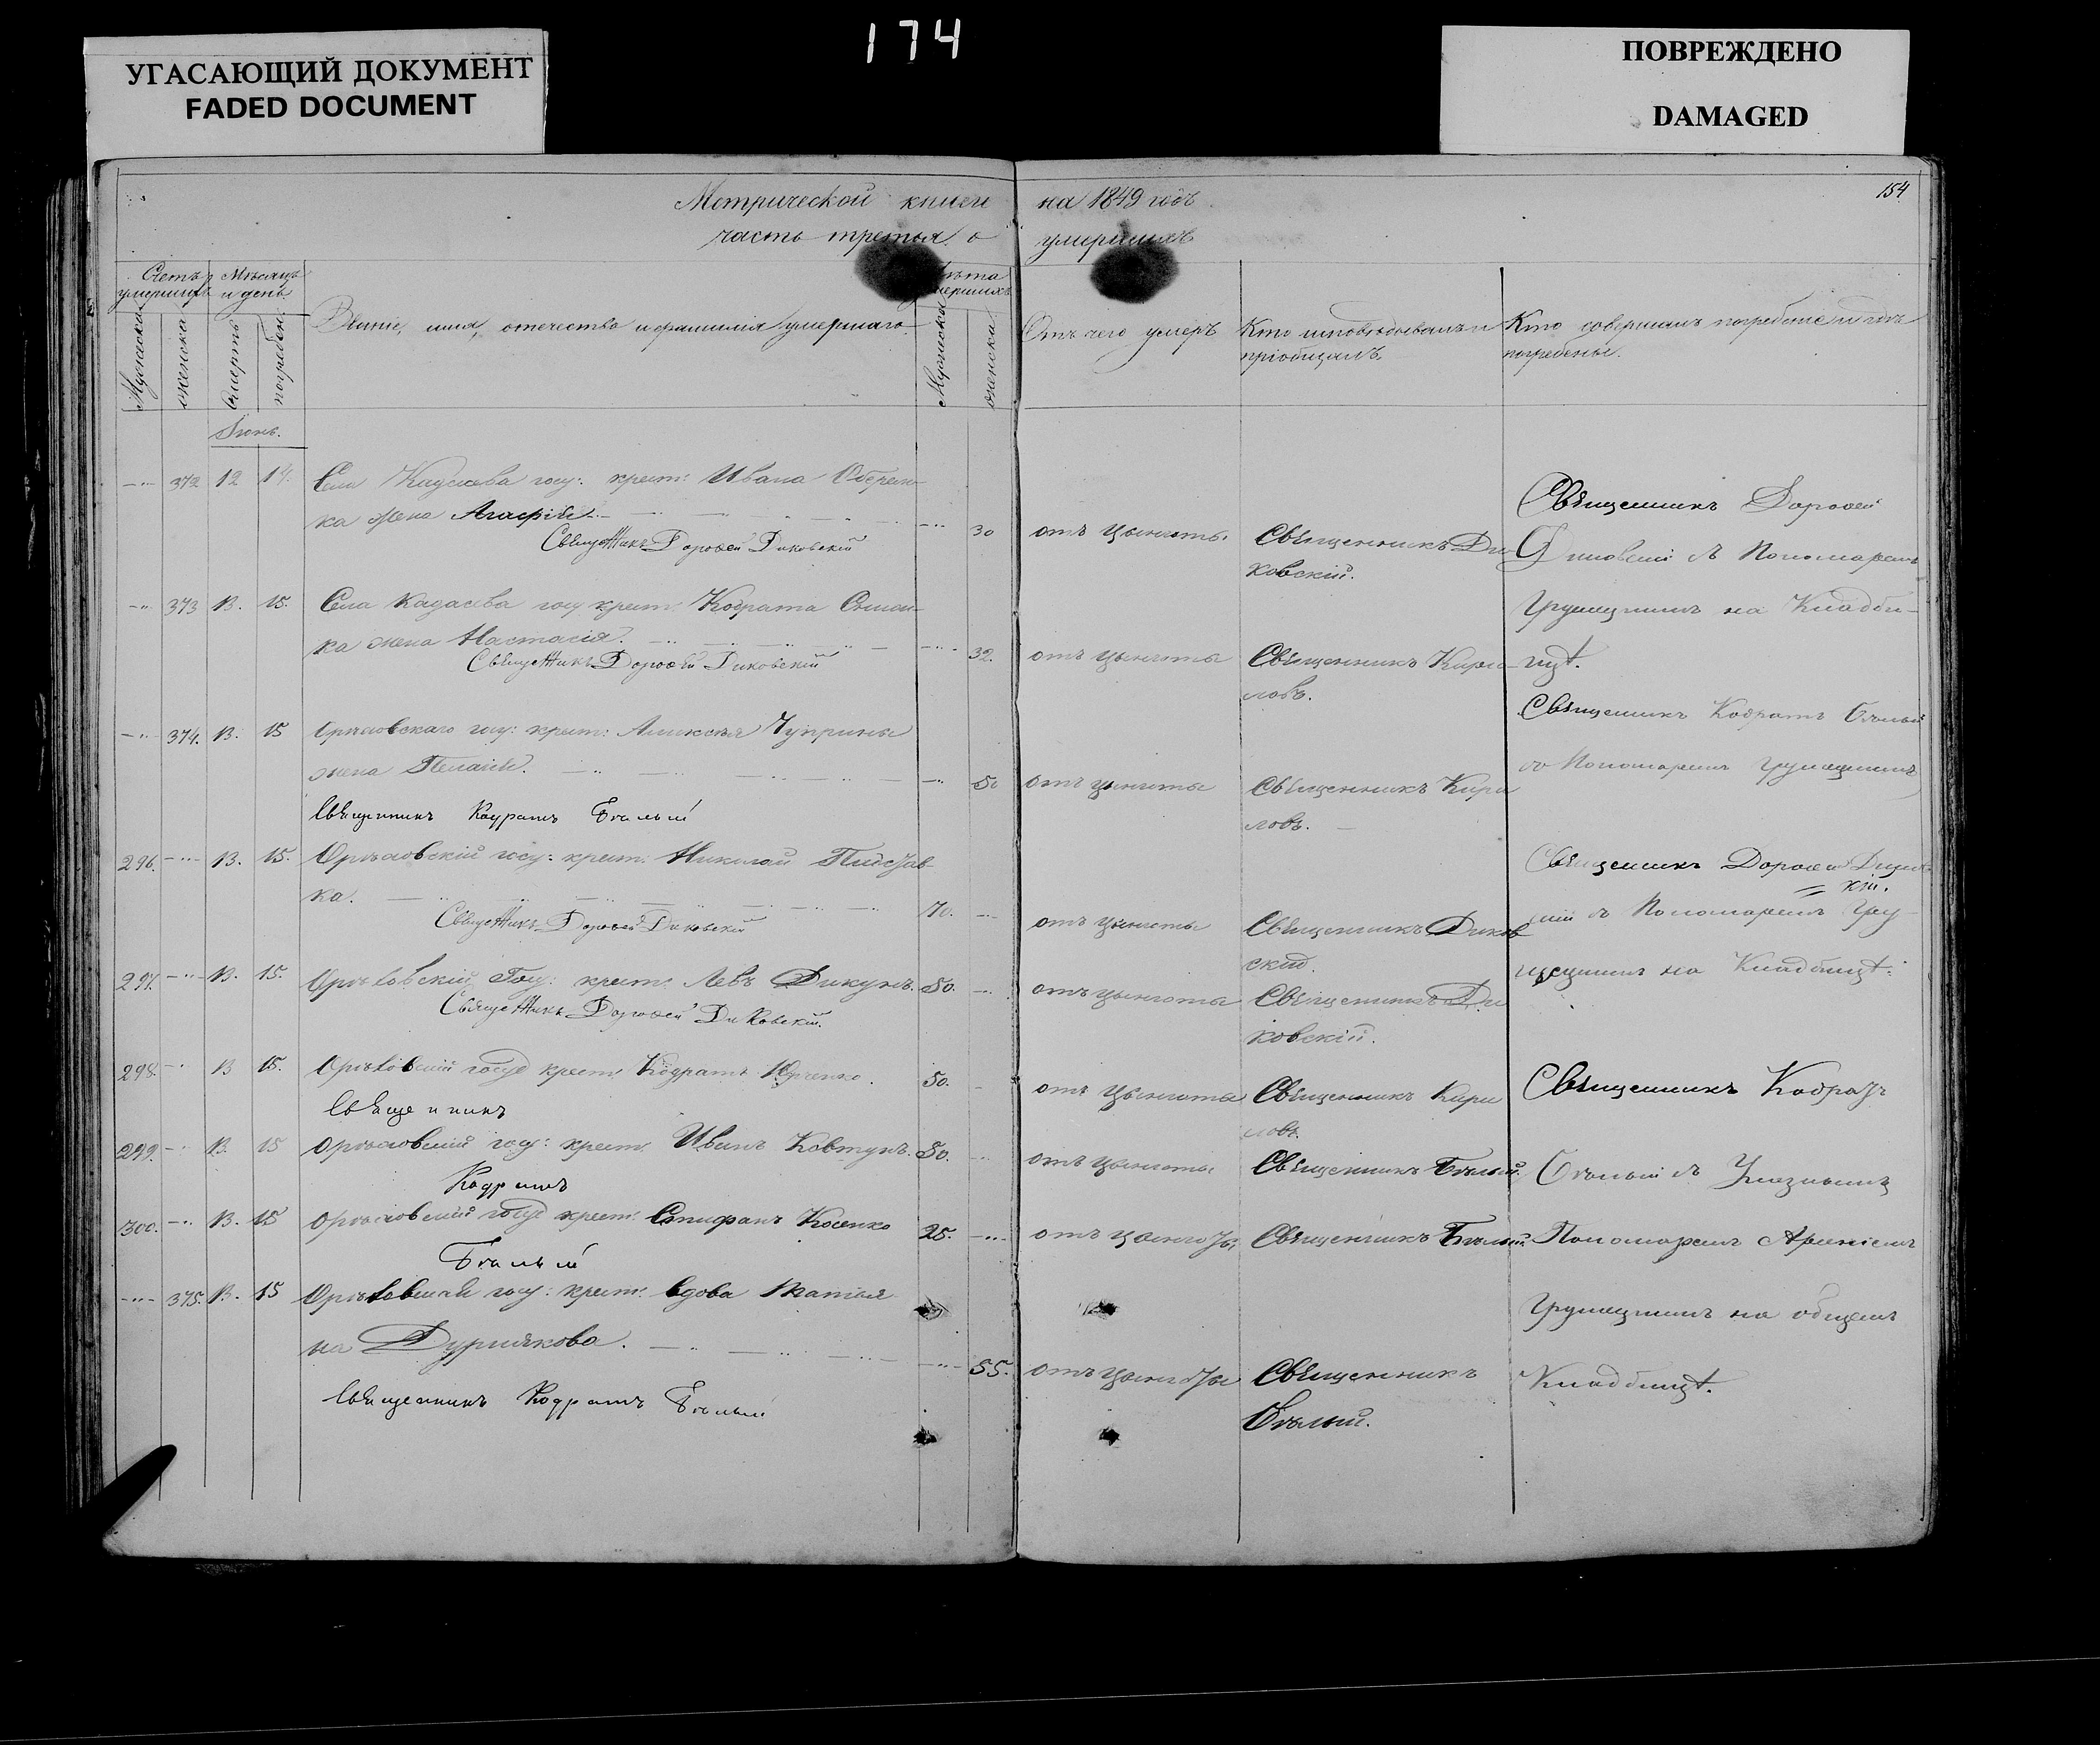 174
УГАСАЮЩИЙ ДОКУМЕНТ
FADED DOCUMENT
ПОВРЕЖДЕНО
DAMAGED
154
Метрической книги на 1849 годъ
часть третья о умершихъ
Счетъ умершихъ
Мужеска
женска
Мѣсяцъ и день
Смерть
погребен.
Званіе, имя, отечество и фамилія умершаго
Лѣта умершихъ
Мужеска
женска
Отъ чего умеръ
Кто исповѣдывалъ и
пріобщалъ.
Кто совершалъ погребеніе и гдѣ
погребены.
Іюнь.
372 12 14. Села госу: крест: Ивана
ка жена Агафія 30 отъ цынготы. Священникъ Ди
ковскій.
Священникъ Дорофей Диковскій
Священникъ Дорофей
съ Пономаремъ
на Кладби
щѣ.
373 13. 15. Села госу крест: Кодрата
ка жена Настасія. 32. отъ цынготы Священникъ Кири
ловъ.
Священникъ Дорофей Диковскій
374. 13. 15 Орѣховскаго госу: крест: Алексѣя Чуприны
жена Пелагія. 50 отъ цынготы Священникъ Кири
ловъ.
Священникъ Кодратъ Бѣлый
Священникъ Кодратъ Бѣлый
со Пономаремъ
296. 13. 15. Орѣховскій госу: крест: Николай
ка. 70. отъ цынготы Священникъ Диков
скій.
Священникъ Дорофей Диковскій
Священникъ Дорофей
кій.
съ Пономаремъ
на Кладбищѣ.
297. 13. 15. Орѣховскій Госу: крест: Левъ Дикунъ. 50. отъ цынготы Священникъ Ди
ковскій.
Священникъ Дорофей Диковскій.
298. 13 15. Орѣховскій госуд крест: Кодратъ Юрченко. 50. отъ цынготы Священникъ Кири
ловъ.
Священникъ
Священникъ Кодратъ
299. 13. 15 Орѣховскій госу: крест: Иванъ Ковтунъ. 50. отъ цынготы Священникъ Бѣлый.
Кодратъ
Бѣлый съ
300. 13. 15 Орѣховскій госуд крест: Стифанъ Косенко 25. отъ цынготы Священникъ Бѣлый.
Бѣлый
Пономаремъ
375. 13. 15 Орѣховская госу: крест: вдова Татья
на Дурнякова. 55. отъ цынготы Священникъ
Бѣлый.
Священникъ Кодратъ Бѣлый
на общемъ
Кладбищѣ.